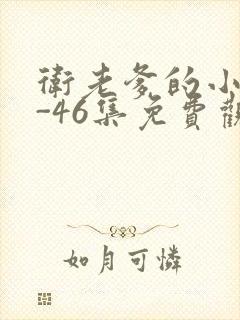 衛老爹的小
-46集免費觀
如月可憐